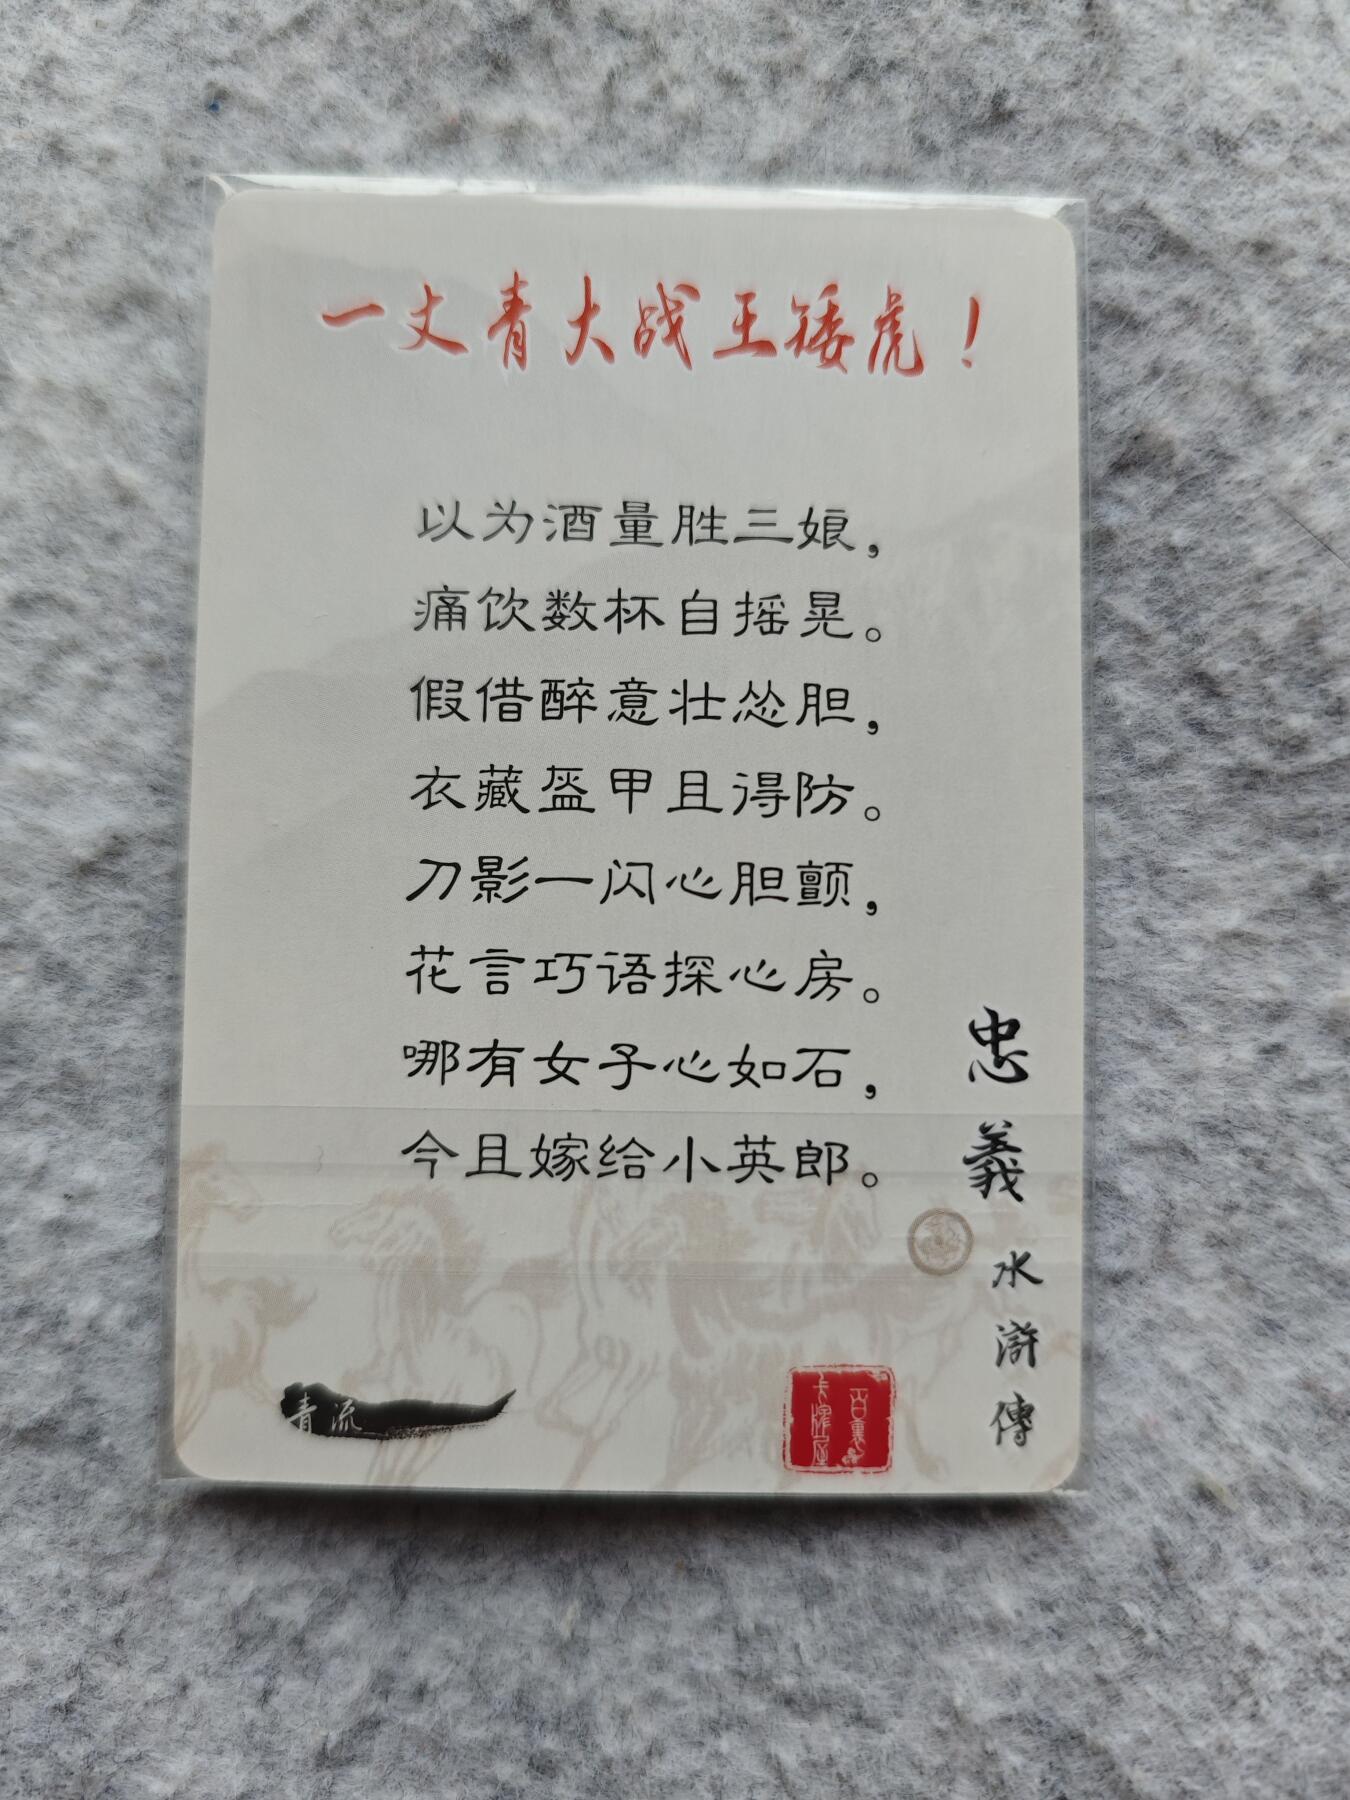 一丈青大战王矮虎！
以为酒量胜三娘，
痛饮数杯自摇晃。
假借醉意壮怂胆，
衣藏盔甲且得防。
刀影一闪心胆颤，
花言巧语探心房。
哪有女子心如石，
今且嫁给小英郎。
忠義
水滸傳
青流
百裏
卡牌屋